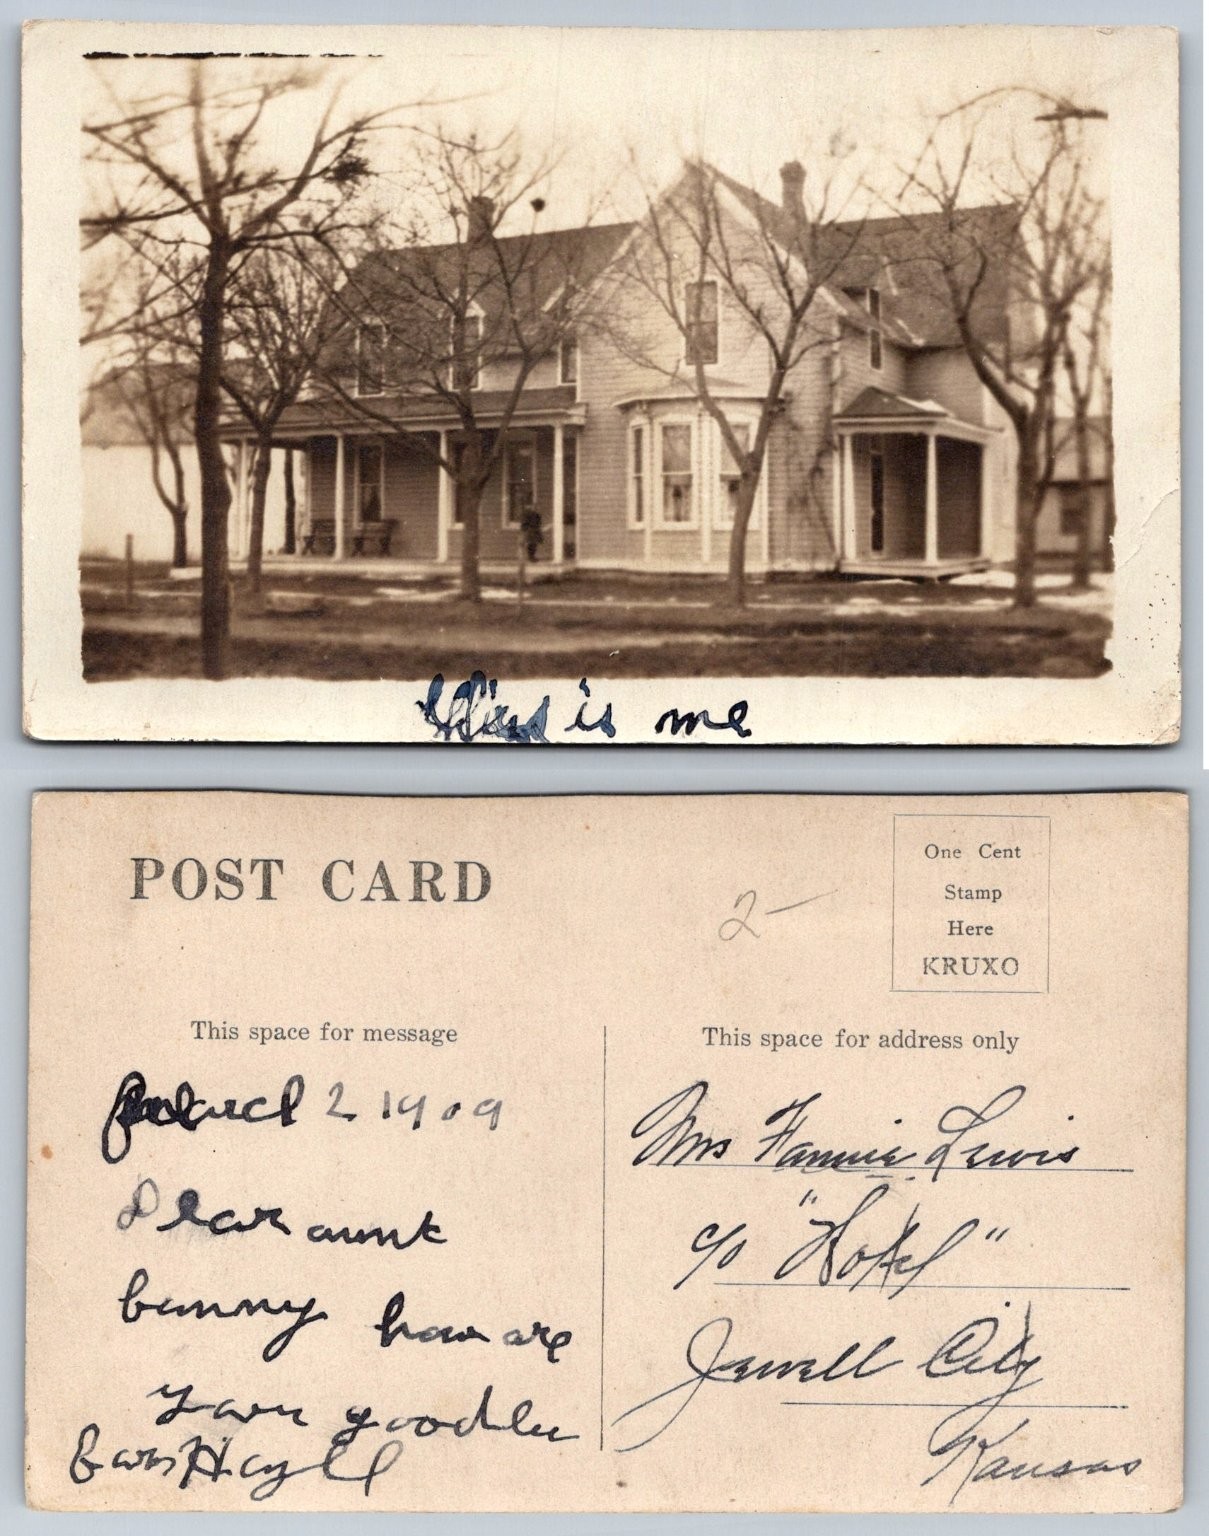 This is me
POST CARD
One Cent
Stamp
Here
KRUXO
2-
This space for message
This space for address only
March 2 1909
Dear aunt
how are
you goodby
Mrs Fannie Lewis
c/o "Hotel"
Jewell City
Kansas